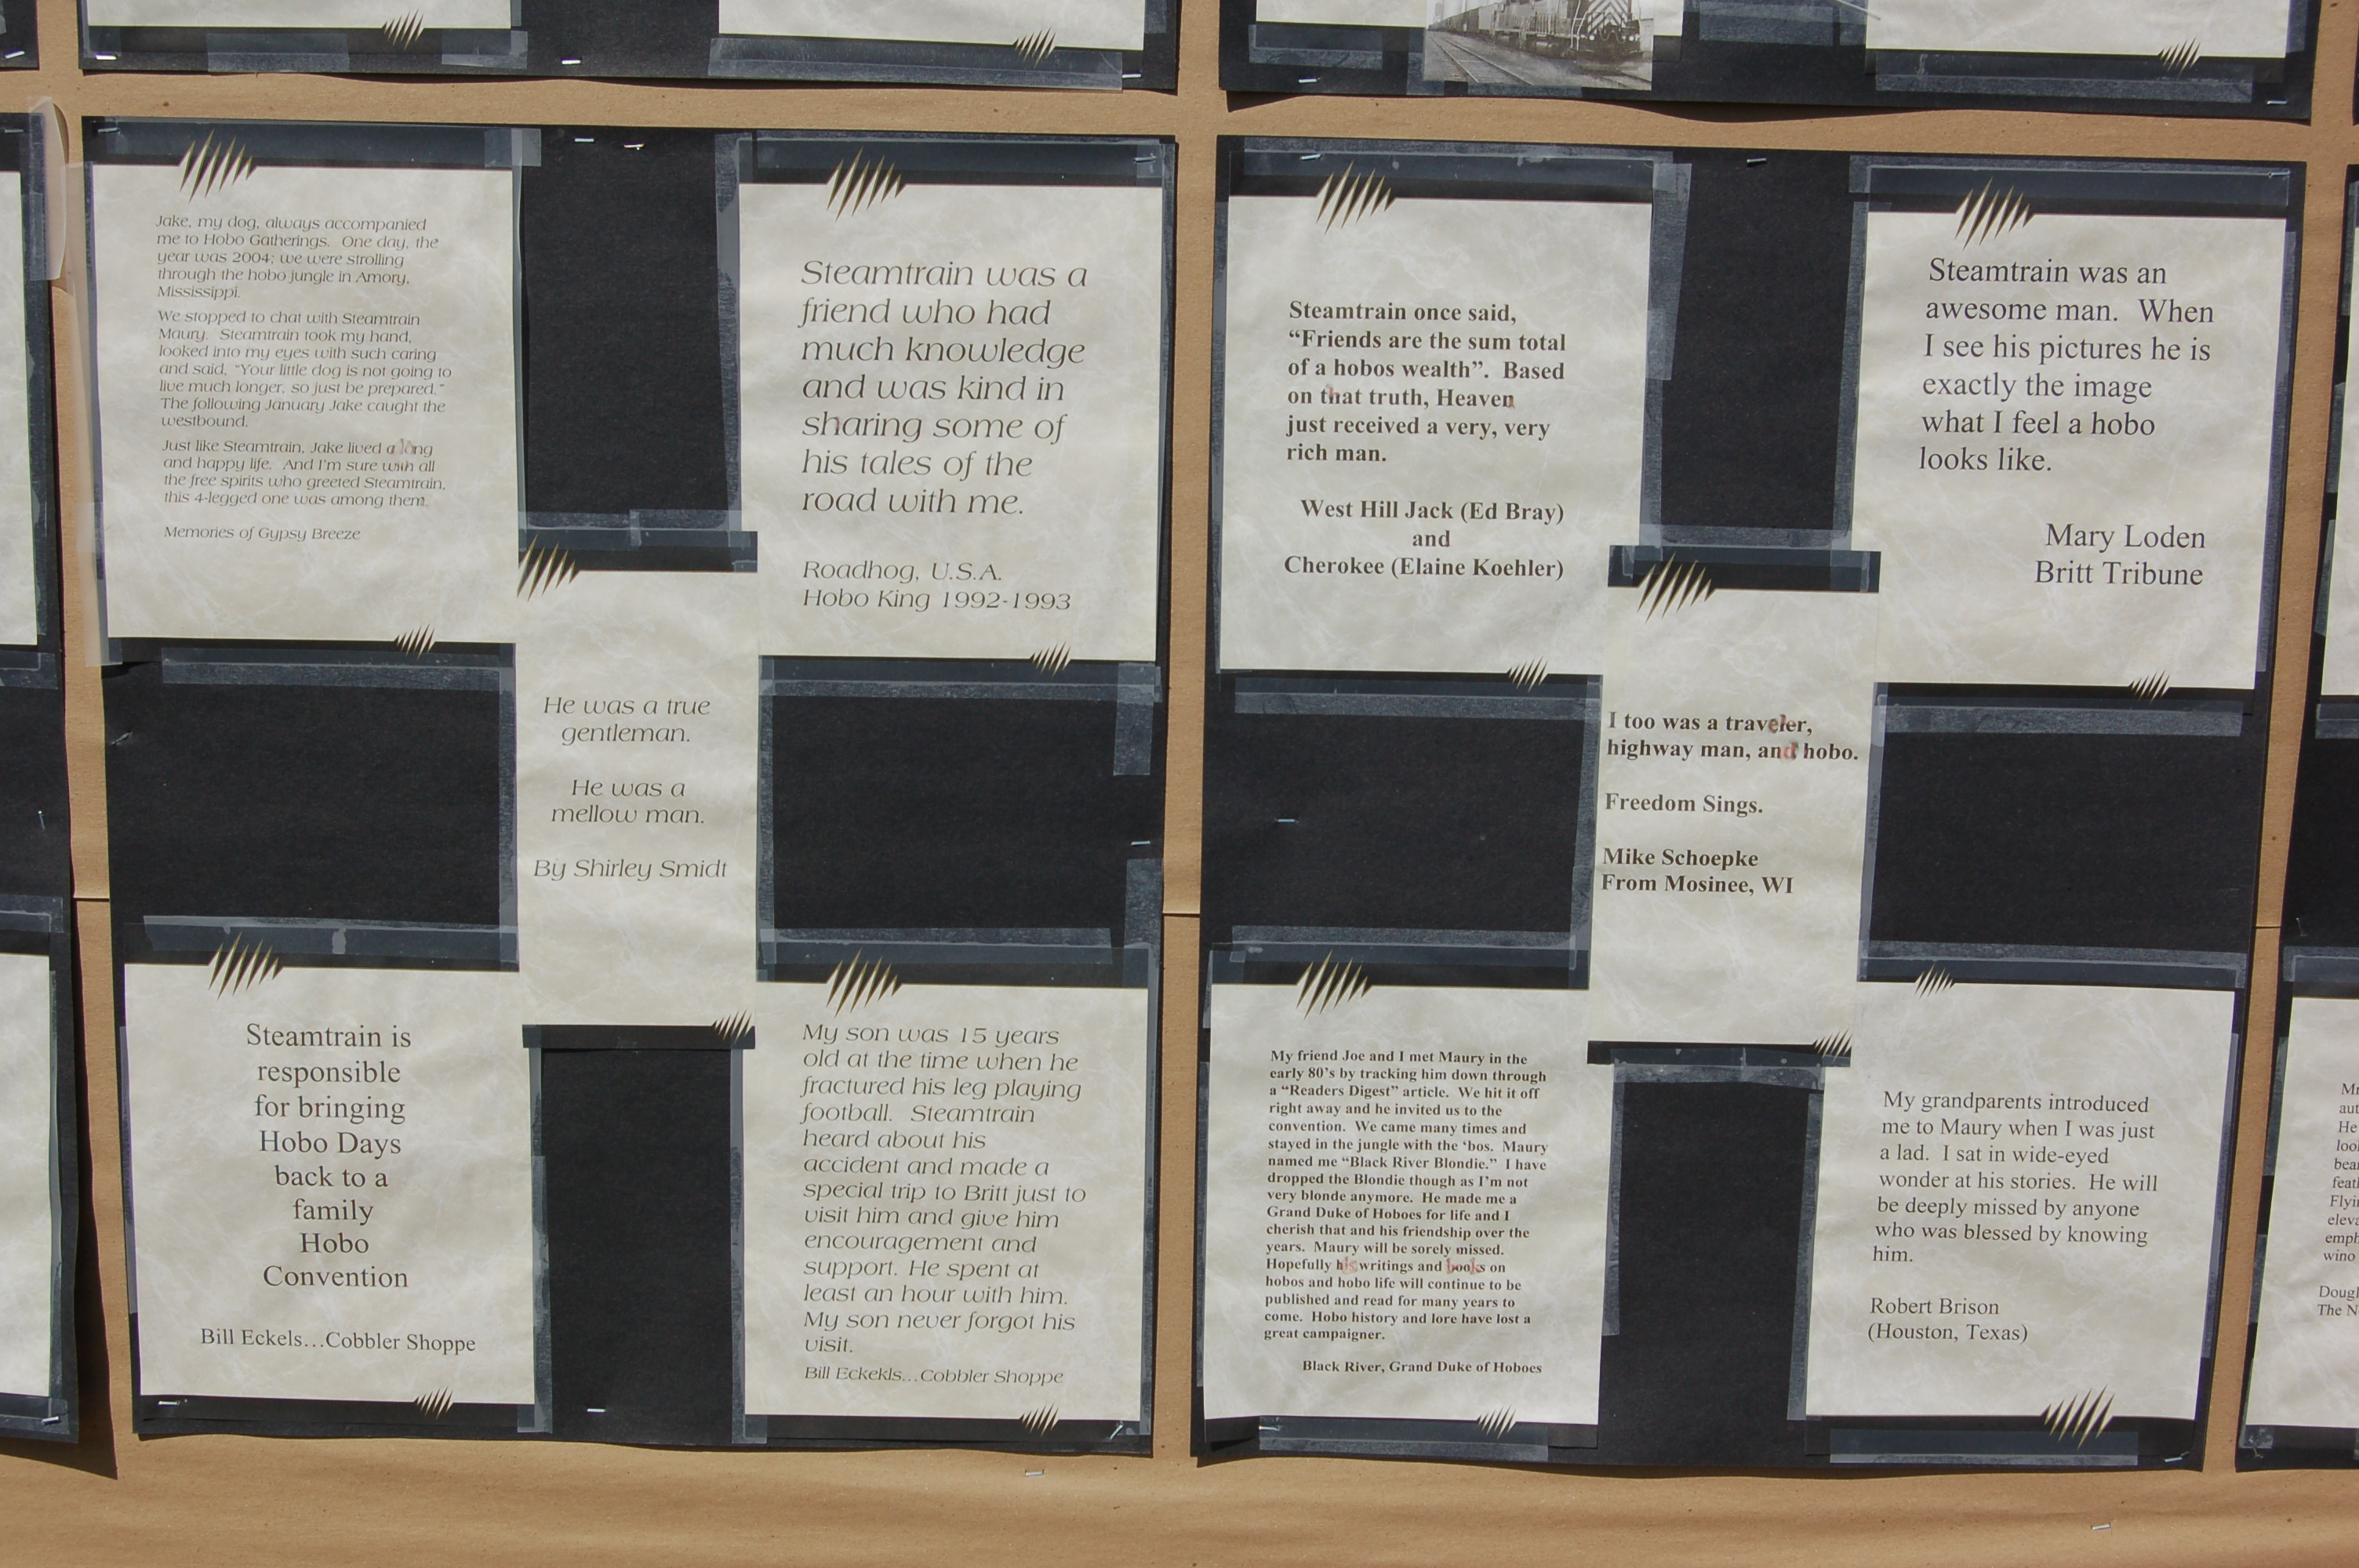 Jake, my dog, always accompanied
me to Hobo Gatherings. One day, the
year was 2004; we were strolling
through the hobo jungle in Amory,
Mississippi.
We stopped to chat with Steamtrain
Maury. Steamtrain took my hand,
looked into my eyes with such caring
and said, "Your little dog is not going to
live much longer, so just be prepared."
The following January Jake caught the
westbound.
Just like Steamtrain, Jake lived a long
and happy life. And I'm sure with all
the free spirits who greeted Steamtrain,
this 4-legged one was among them.
Memories of Gypsy Breeze
Steamtrain was a
friend who had
much knowledge
and was kind in
sharing some of
his tales of the
road with me.
Roadhog, U.S.A.
Hobo King 1992-1993
He was a true
gentleman.
He was a
mellow man.
By Shirley Smidt
Steamtrain is
responsible
for bringing
Hobo Days
back to a
family
Hobo
Convention
Bill Eckels...Cobbler Shoppe
My son was 15 years
old at the time when he
fractured his leg playing
football. Steamtrain
heard about his
accident and made a
special trip to Britt just to
visit him and give him
encouragement and
support. He spent at
least an hour with him.
My son never forgot his
visit.
Bill Eckekls...Cobbler Shoppe
Steamtrain once said,
"Friends are the sum total
of a hobos wealth". Based
on that truth, Heaven
just received a very, very
rich man.
West Hill Jack (Ed Bray)
and
Cherokee (Elaine Koehler)
Steamtrain was an
awesome man. When
I see his pictures he is
exactly the image
what I feel a hobo
looks like.
Mary Loden
Britt Tribune
I too was a traveler,
highway man, and hobo.
Freedom Sings.
Mike Schoepke
From Mosinee, WI
My friend Joe and I met Maury in the
early 80's by tracking him down through
a "Readers Digest" article. We hit it off
right away and he invited us to the
convention. We came many times and
stayed in the jungle with the 'bos. Maury
named me "Black River Blondie." I have
dropped the Blondie though as I'm not
very blonde anymore. He made me a
Grand Duke of Hoboes for life and I
cherish that and his friendship over the
years. Maury will be sorely missed.
Hopefully his writings and books on
hobos and hobo life will continue to be
published and read for many years to
come. Hobo history and lore have lost a
great campaigner.
Black River, Grand Duke of Hoboes
My grandparents introduced
me to Maury when I was just
a lad. I sat in wide-eyed
wonder at his stories. He will
be deeply missed by anyone
who was blessed by knowing
him.
Robert Brison
(Houston, Texas)
He
wino
The